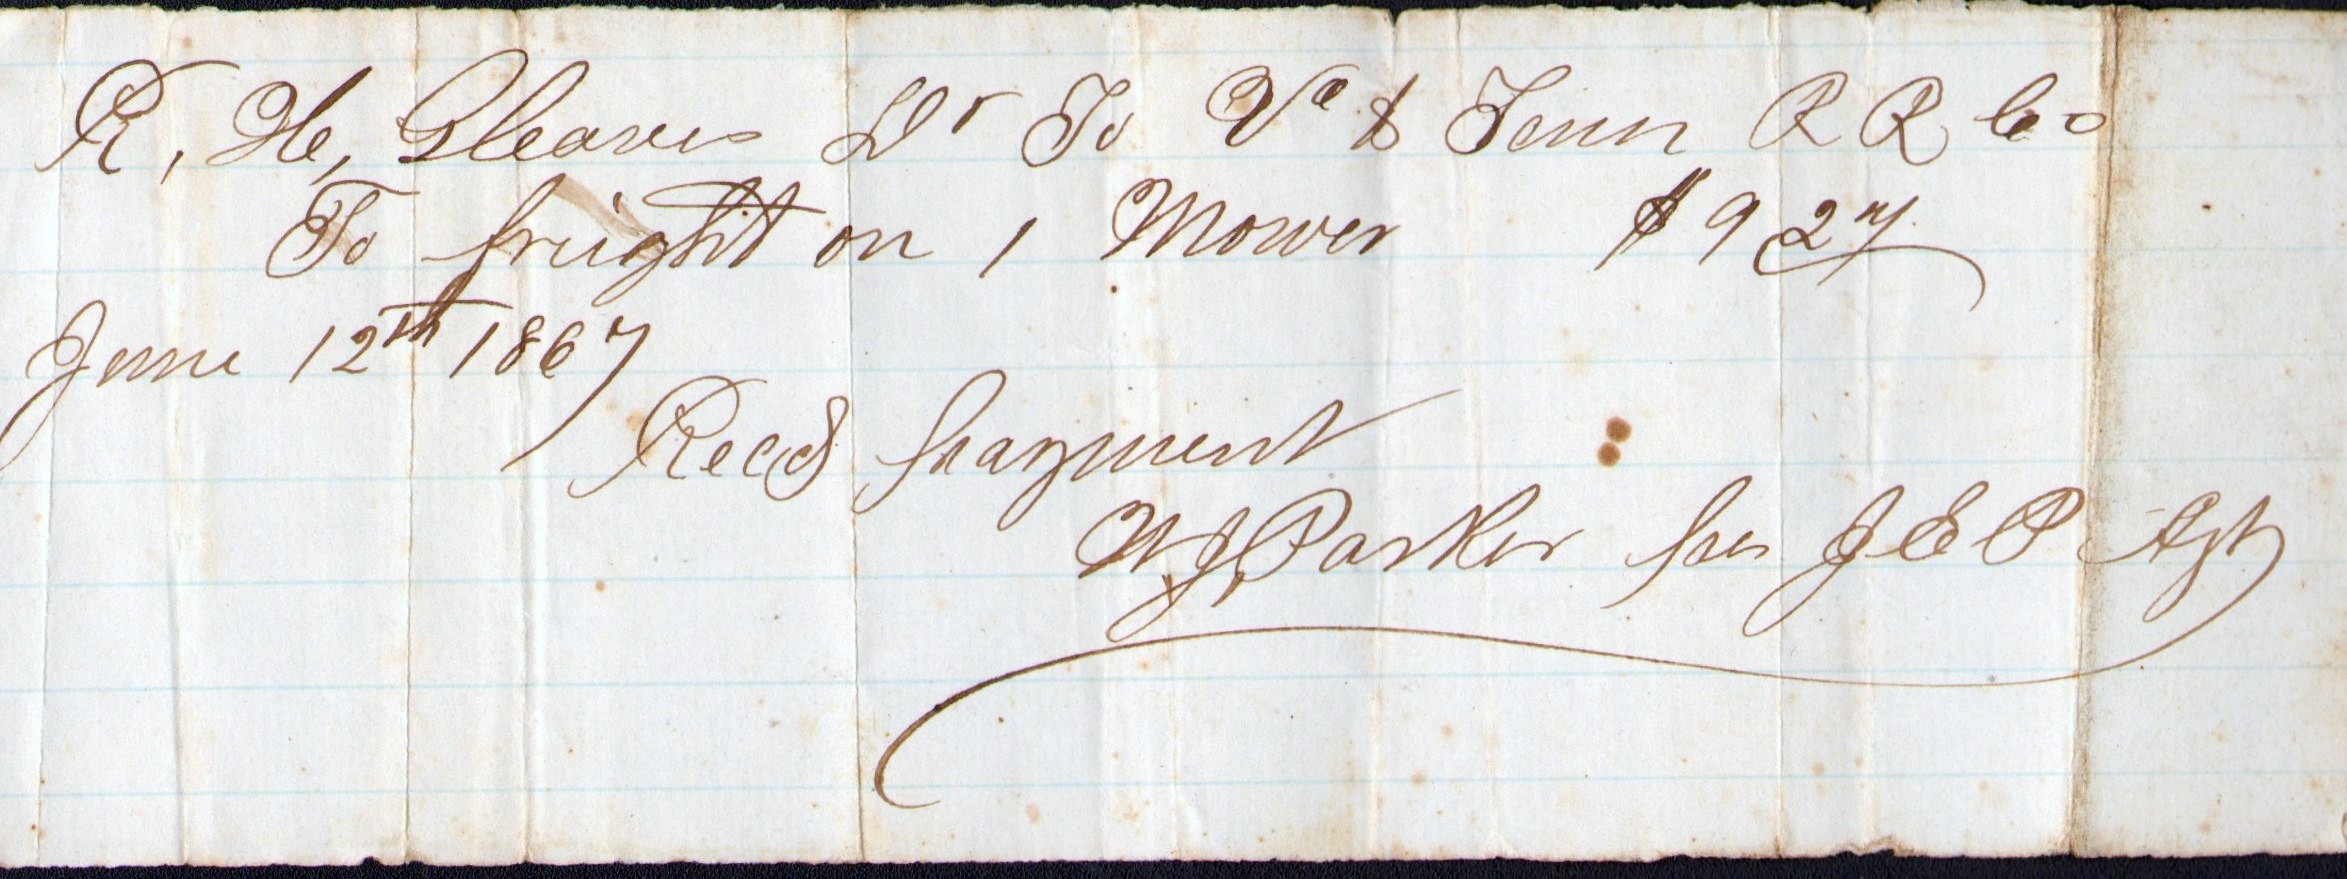 R, H, Gleaves Dr To Va & Tenn R R Co
To freight on 1 Mower $9 27
June 12th 1867
Recd payment
W J, Parker for J E P Agt